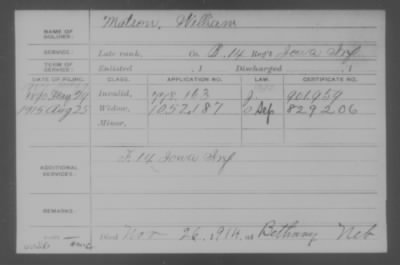 NAME OF SOLDIER: Matson, William
SERVICE: Late rank, Co. B, 14 Reg't Iowa Inf
TERM OF SERVICE: Enlisted , 1 Discharged , 1
DATE OF FILING. CLASS. APPLICATION NO. LAW. CERTIFICATE NO.
1890 Invalid, 778.163 J. 901.959
1915 Aug 25 Widow, 1052.187 O Sep 829206
Minor,
ADDITIONAL SERVICES: F. 14 Iowa Inf
REMARKS:
Died Nov 26, 1914, at Bethany Neb